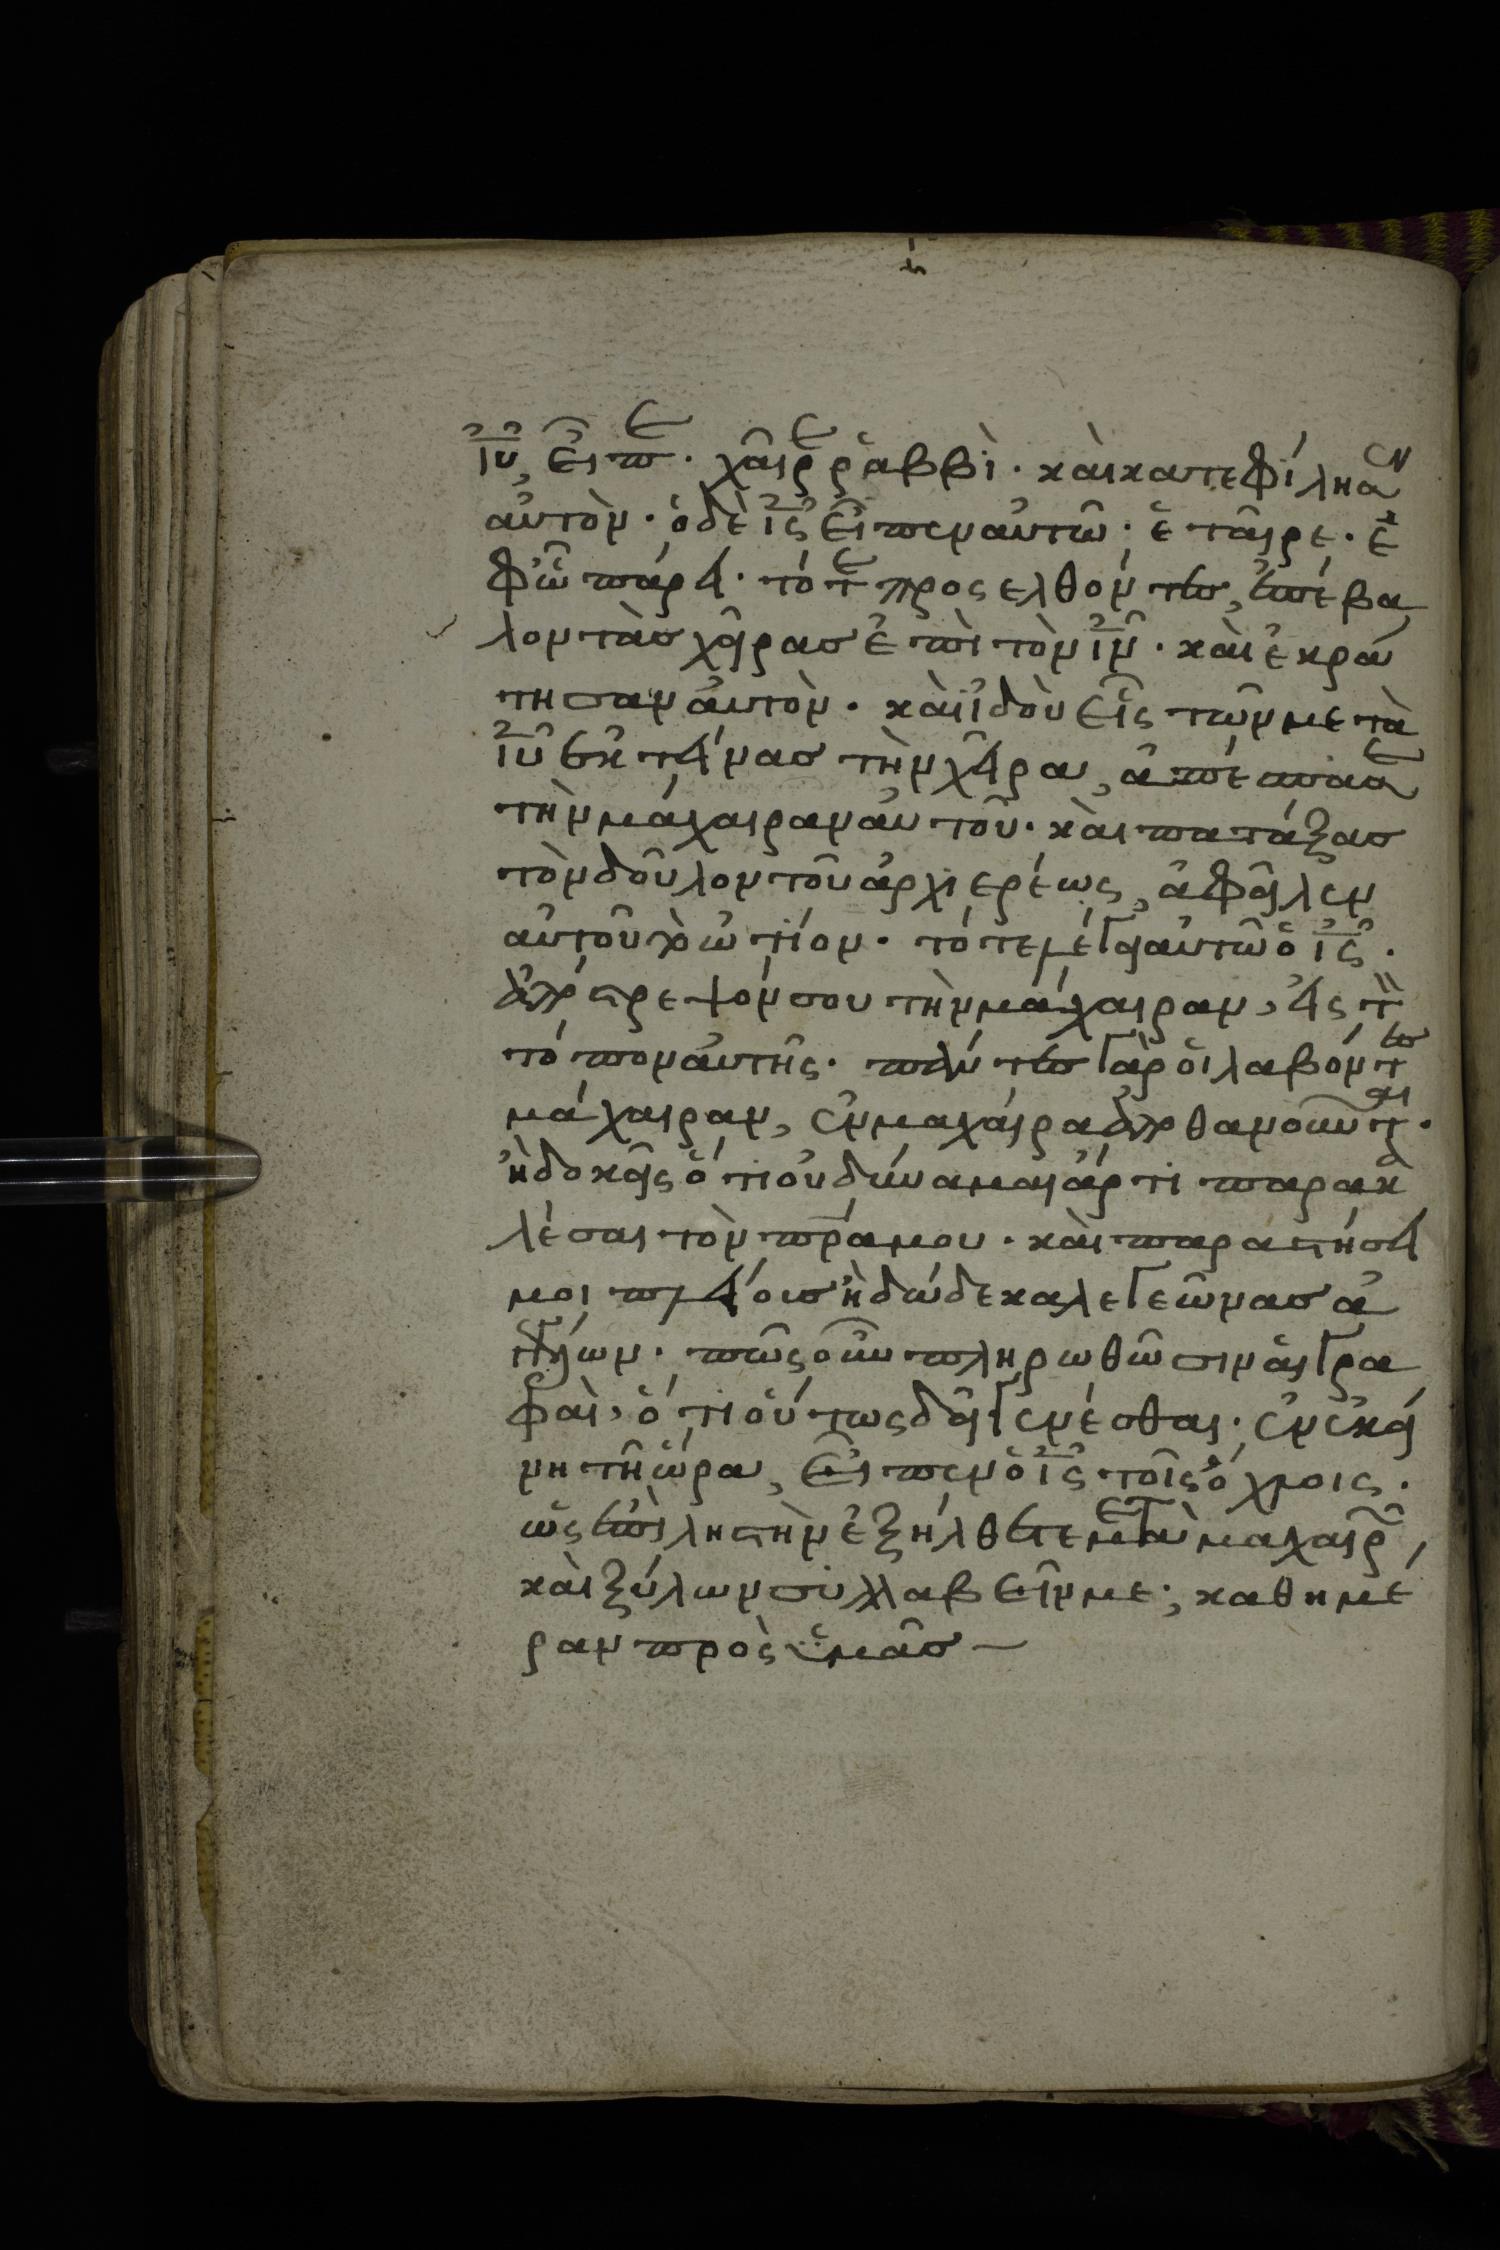 ιῦ, εἶπε· χαῖρε ῥαββὶ· καὶ κατεφίλησεν
αὐτὸν· ὁ δὲ ις εἶπεν αὐτῶ· ἑταῖρε· ἐ
φῶ πάρει· τότε προσελθόντες, ἐπέβα
λον τὰς χεῖρας ἐπὶ τὸν ιν· καὶ ἐκρά
τησαν αὐτὸν· καὶ ἰδοὺ εἷς τῶν μετὰ
ιῦ ἐκτείνας τὴν χεῖρα, ἀπέσπασε
τὴν μάχαιραν αὐτοῦ· καὶ πατάξας
τὸν δοῦλον τοῦ ἀρχιερέως, ἀφεῖλεν
αὐτοῦ τὸ ὠτίον· τότε λέγει αὐτῶ ὁ ις·
ἀπόστρεψόν σου τὴν μάχαιραν, εἰς τὸν
τόπον αὐτῆς· πάντες γὰρ οἱ λαβόντες
μάχαιραν, ἐν μαχαίρα ἀποθανοῦνται·
ἢ δοκεῖς ὅτι οὐ δύναμαι ἄρτι παρακα
λέσαι τὸν πρα μου· καὶ παραστήσει
μοι πλείους ἢ δώδεκα λεγεῶνας ἀγ
γέλων· πῶς οὖν πληρωθῶσιν αἱ γρα
φαὶ, ὅτι οὕτως δεῖ γενέσθαι· ἐν ἐκεί
νη τῆ ὥρα, εἶπεν ὁ ις τοῖς ὄχλοις·
ὡς ἐπὶ ληστὴν ἐξήλθετε μετὰ μαχαιρῶν
καὶ ξύλων συλλαβεῖν με; καθημέ
ραν πρὸς ὑμᾶς